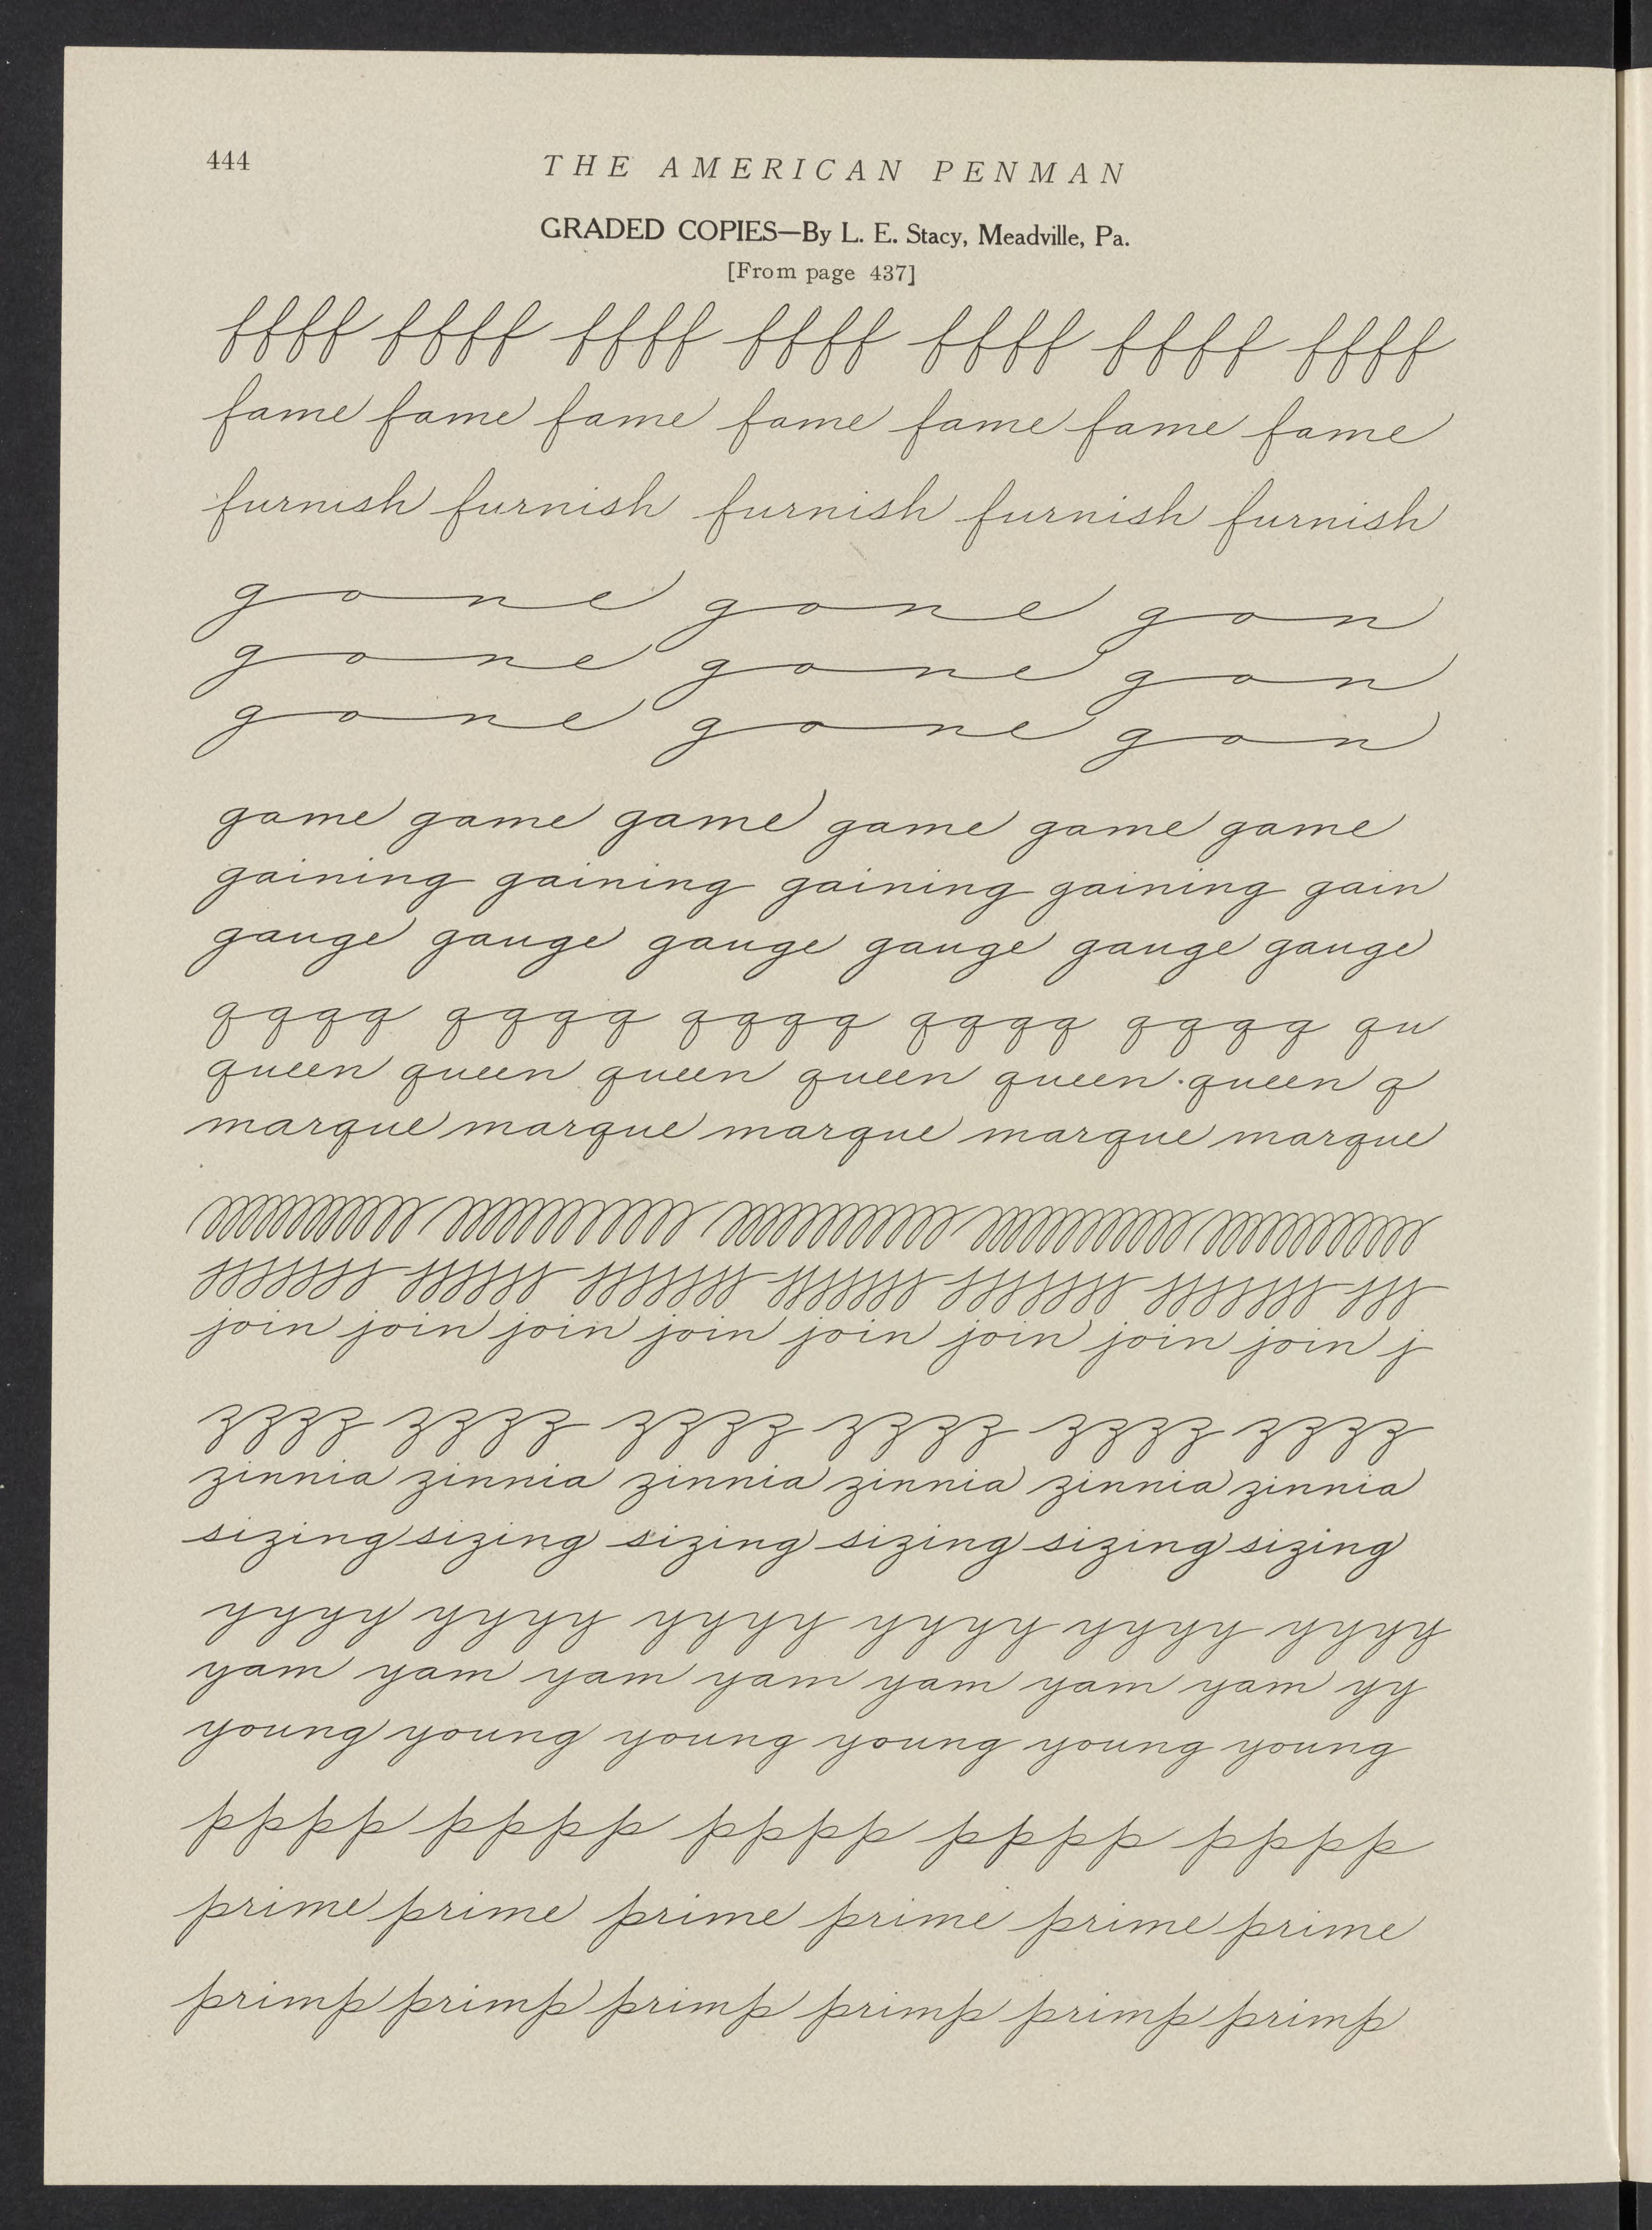 444
THE AMERICAN PENMAN
GRADED COPIES—By L. E. Stacy, Meadville, Pa.
[From page 437]
ffff ffff ffff ffff ffff ffff ffff
fame fame fame fame fame fame fame
furnish furnish furnish furnish furnish
gone gone gon
gone gone gon
gone gone gon
game game game game game game
gaining gaining gaining gaining gain
gauge gauge gauge gauge gauge gauge
qqqq qqqq qqqq qqqq qqqq qu
queen queen queen queen queen queen q
marque marque marque marque marque
join join join join join join join join j
zzzz zzzz zzzz zzzz zzzz zzzz
zinnia zinnia zinnia zinnia zinnia zinnia
sizing sizing sizing sizing sizing sizing
yyyy yyyy yyyy yyyy yyyy yyyy
yam yam yam yam yam yam yam yy
young young young young young young
pppp pppp pppp pppp pppp
prime prime prime prime prime prime
primp primp primp primp primp primp